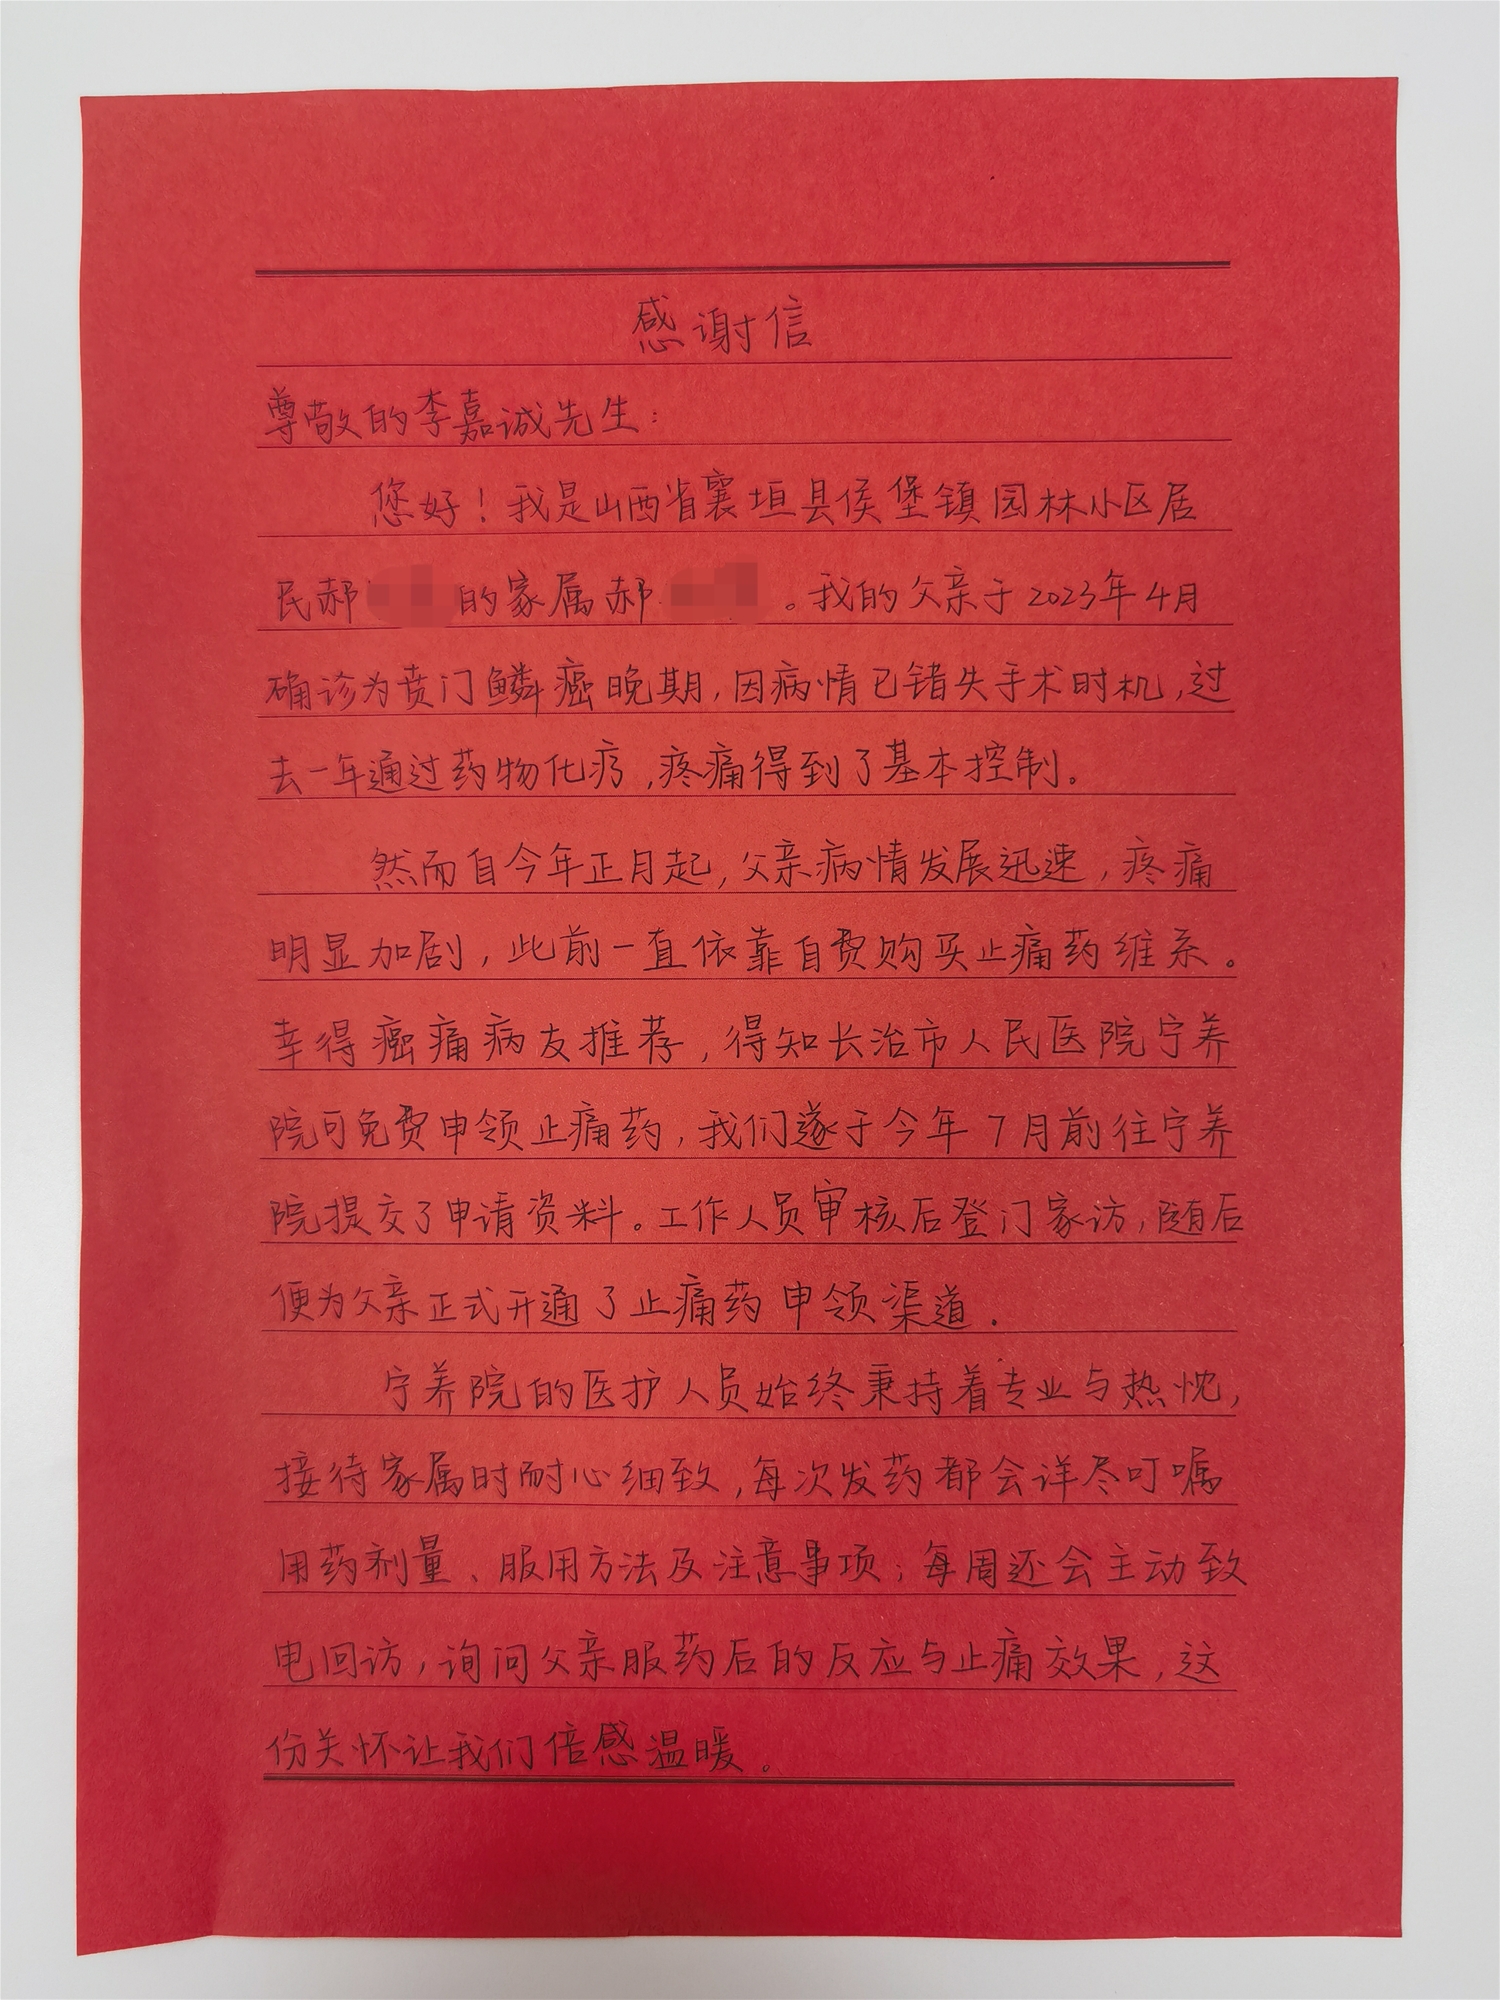 感谢信
尊敬的李嘉诚先生：
您好！我是山西省襄垣县侯堡镇园林小区居
民郝 的家属郝 。我的父亲于2023年4月
确诊为贲门鳞癌晚期，因病情已错失手术时机，过
去一年通过药物化疗，疼痛得到了基本控制。
然而自今年正月起，父亲病情发展迅速，疼痛
明显加剧，此前一直依靠自费购买止痛药维系。
幸得癌痛病友推荐，得知长治市人民医院宁养
院可免费申领止痛药，我们遂于今年7月前往宁养
院提交了申请资料。工作人员审核后登门家访，随后
便为父亲正式开通了止痛药申领渠道.
宁养院的医护人员始终秉持着专业与热忱，
接待家属时耐心细致，每次发药都会详尽叮嘱
用药剂量、服用方法及注意事项；每周还会主动致
电回访，询问父亲服药后的反应与止痛效果，这
份关怀让我们倍感温暖。